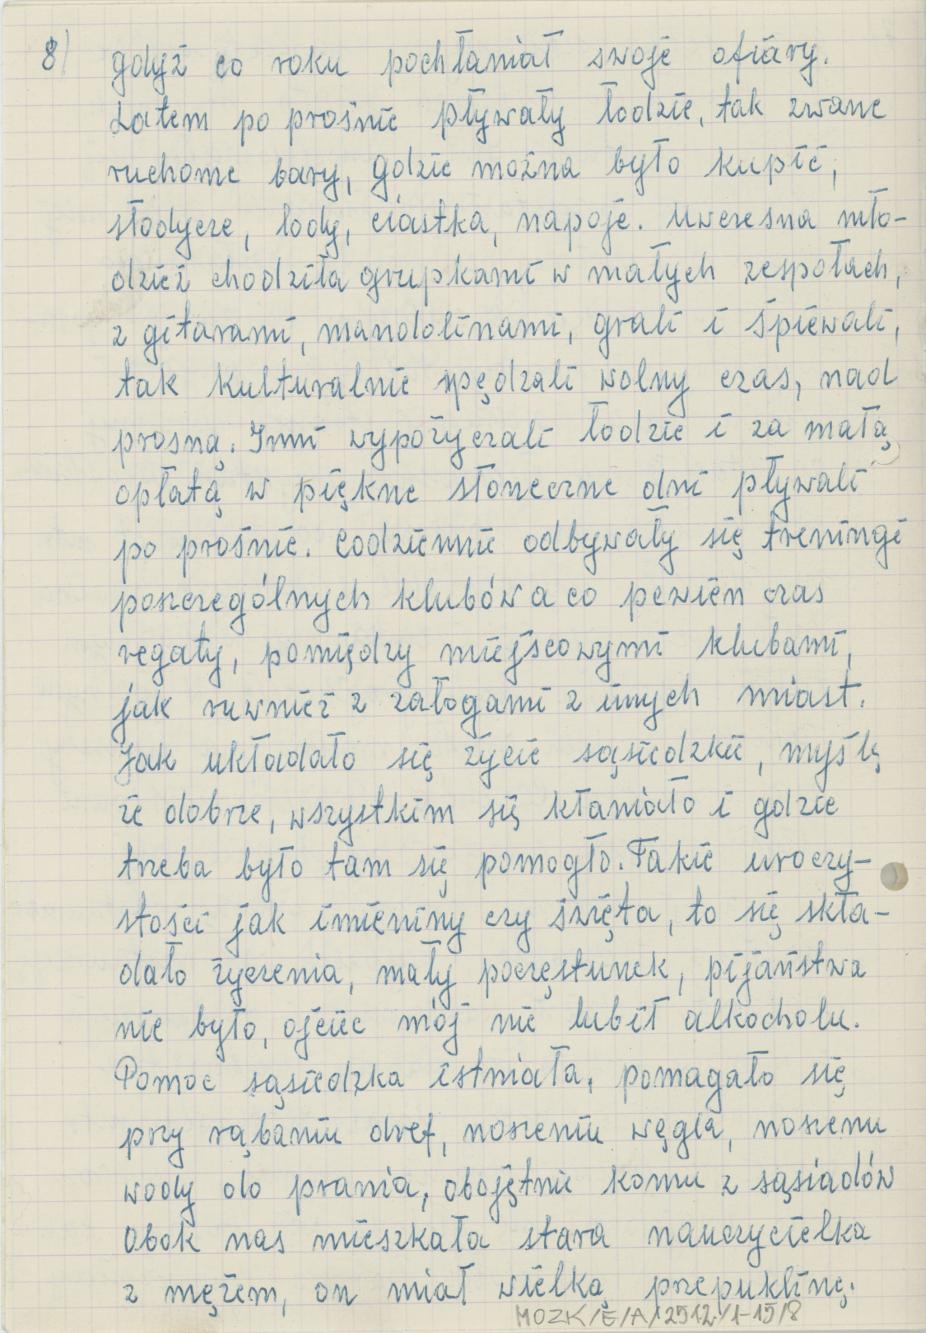 8) gdyż co roku pochłaniał swoje ofiary.
Latem po prośnie pływały łodzie, tak zwane
ruchome bary, gdzie można było kupić,
słodycze, lody, ciastka, napoje. Uwczesna mło-
dzież chodziła grupkami w małych zespołach,
z gitarami, mandolinami, grali i śpiewali,
tak kulturalnie spędzali wolny czas, nad
prosną. Inni wypożyczali łodzie i za małą
opłatą w piękne słoneczne dni pływali
po prośnie. Codziennie odbywały się treningi
poszczególnych klubów a co pewien czas
regaty, pomiędzy miejscowymi klubami,
jak ruwnież z załogami z innych miast.
Jak układało się życie sąsiedzkie, myślę
że dobrze, wszystkim się kłaniało i gdzie
trzeba było tam się pomogło. Takie uroczy-
stości jak imieniny czy święta, to się skła-
dało życzenia, mały poczęstunek, pijaństwa
nie było, ojciec mój nie lubił alkocholu.
Pomoc sąsiedzka istniała, pomagało się
przy rąbaniu dref, noszeniu węgla, noszeniu
wody do prania, obojętnie komu z sąsiadów
Obok nas mieszkała stara nauczycielka
z mężem, on miał wielką przepuklinę.
MOZK/E/A/2512/1-15/8